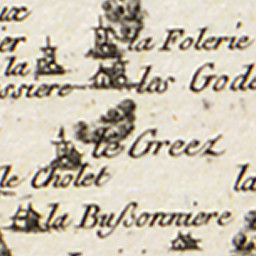 ux
er la Folerie
la
ssiere las Gode
le Greez
le Cholet la
la Bußonniere